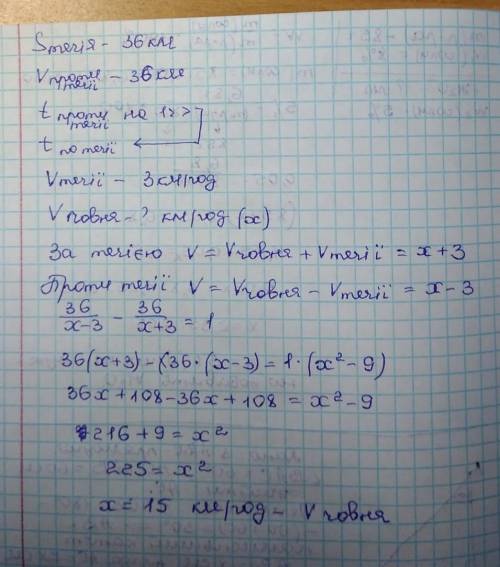 Sтечія - 36 км
Vпроти течії - 36 км
t проти течії на 1г >
t по течії
Vтечії - 3 км/год
Vчовна - ? км/год (x)
За течією V = Vчовна + Vтечії = x + 3
Проти течії V = Vчовна - Vтечії = x - 3
36/(x-3) - 36/(x+3) = 1
36(x+3) - (36·(x-3) = 1·(x² - 9)
36x + 108 - 36x + 108 = x² - 9
216 + 9 = x²
225 = x²
x = 15 км/год - Vчовна